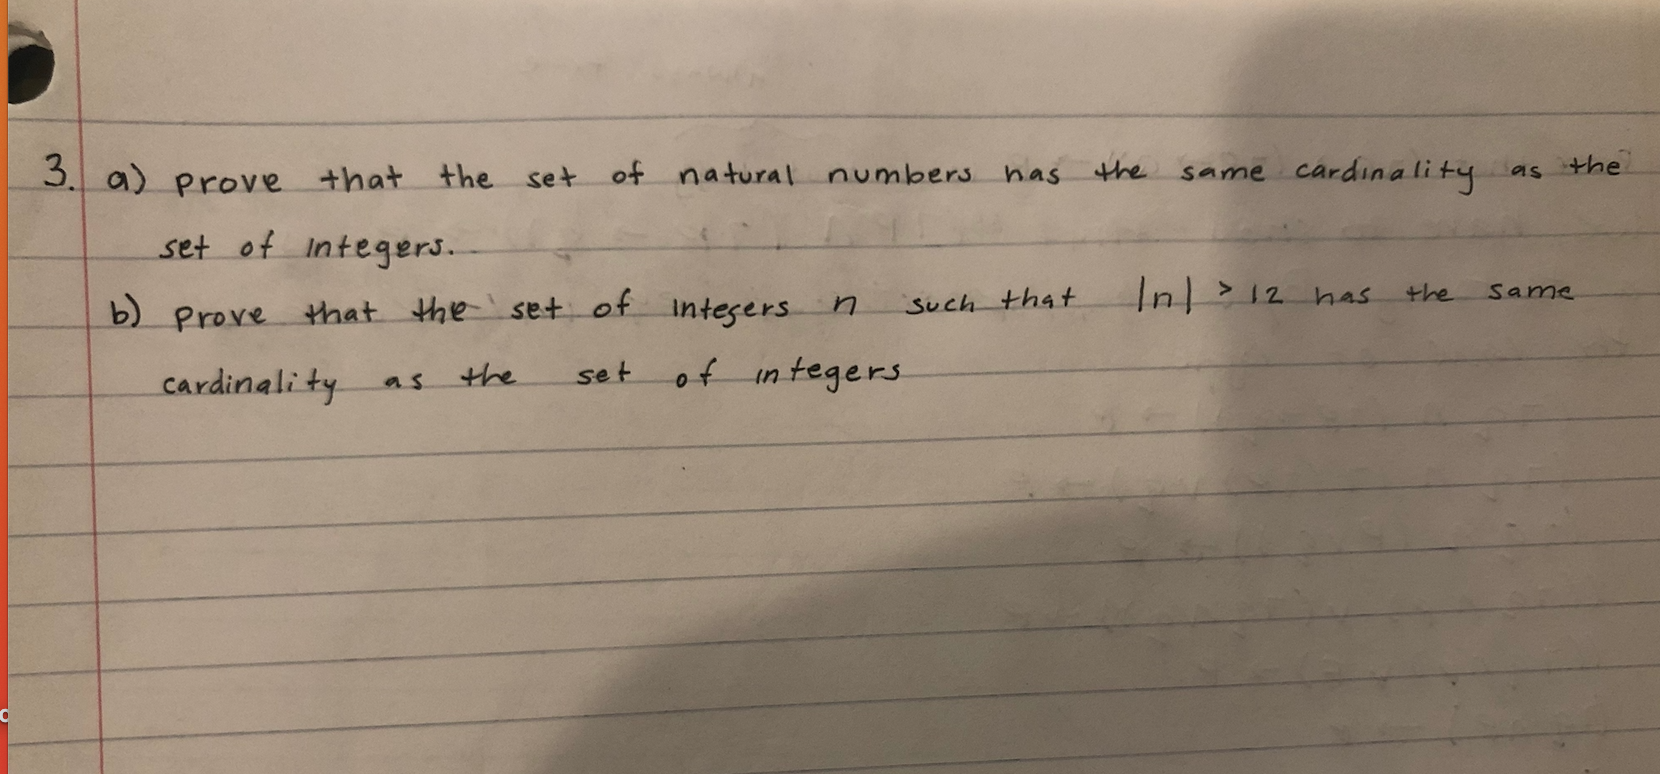 3. a) prove that the set of natural numbers has the same cardinality as the
set of integers.
b) prove that the set of integers n such that |n| > 12 has the same
cardinality as the set of integers